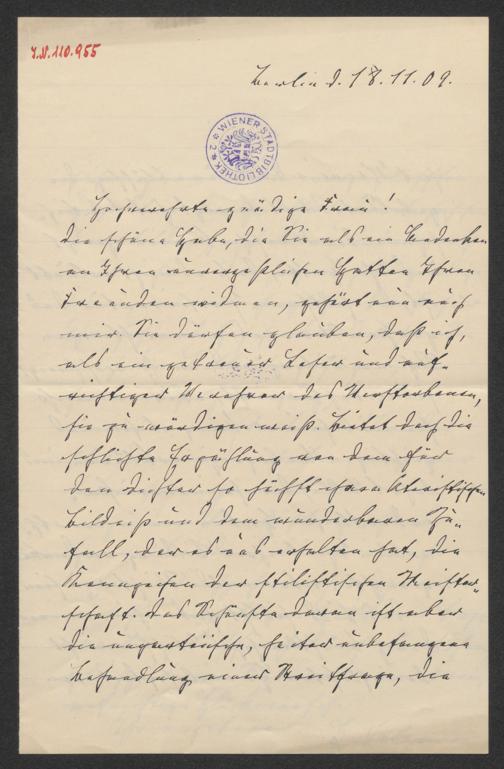 J.N. 110.955
Berlin d. 18.11.09.
WIENER STADTBIBLIOTHEK
Hochverehrte gnädige Frau!
Die schöne Gabe, die Sie als ein Gedenken
an Ihren unvergeßlichen Gatten Ihren
Freunden widmen, gehört nun auch
mir. Sie dürfen glauben, daß ich,
als ein getreuer Leser und auf-
richtiger Verehrer des Verstorbenen,
sie zu würdigen weiß. Bietet doch die
schlichte Erzählung von dem für
den Dichter so höchst
Bildniß und dem wunderbaren Zu-
fall, der es uns erhalten hat, die
Kennzeichen der stilistischen Meister-
schaft. Das Schönste daran ist aber
die heiter unbefangene
Behandlung einer Streitfrage, die